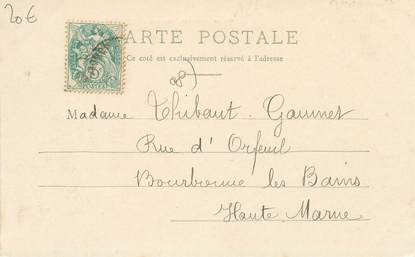 20€
CARTE POSTALE
Ce côté est exclusivement réservé à l'adresse
Madame Thibaut-Gaumet
Rue d'Orfeuil
Bourbonne les Bains
Haute Marne